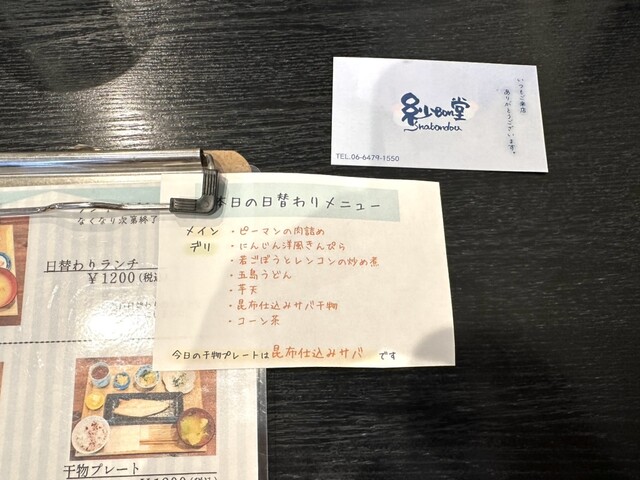 紗bon堂
Shabondou
いつもご来店
ありがとうございます。
TEL.06-6479-1550
本日の日替わりメニュー
メイン・ピーマンの肉詰め
デリ・にんじん洋風きんぴら
・若ごぼうとレンコンの炒め煮
・五島うどん
・芋天
・昆布仕込みサバ干物
・コーン茶
今日の干物プレートは昆布仕込みサバです
なくなり次第終了
日替わりランチ
¥1200(税込
干物プレート